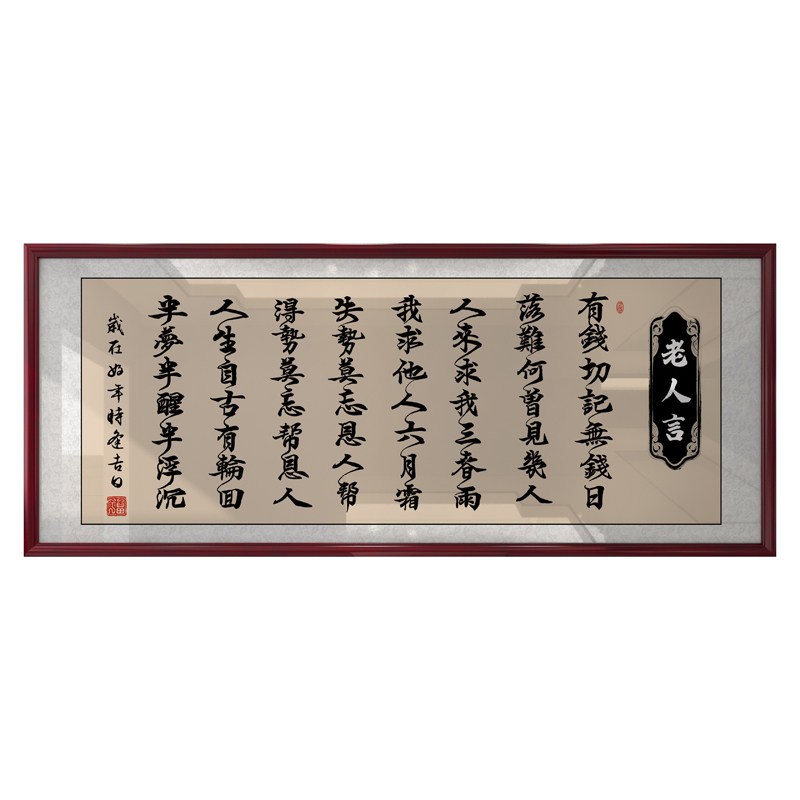 老人言
有錢切記無錢日
落難何曾見幾人
人來求我三春雨
我求他人六月霜
失勢莫忘恩人帮
得勢莫忘帮恩人
人生自古有輪回
半夢半醒半浮沉
歲在好年時逢吉日